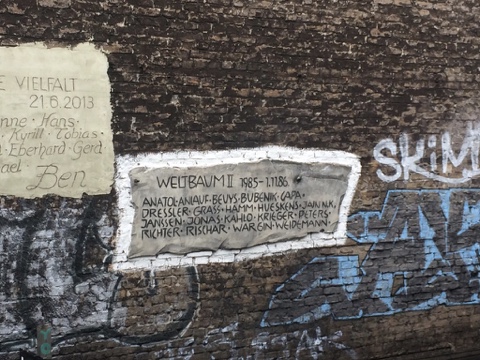 E VIELFALT
21.6.2013
nne · Hans ·
Kyrill · Tobias ·
Eberhard · Gerd
ael ·
Ben
WELTBAUM II 1985-1.11.86.
ANATOL·ANLAUF·BEUYS·BUBENIK·CAPA·
DRESSLER·GRASS·HAMM·HUESKENS·JAIN N.K.
JANSSEN·JONAS·KAHLO·KRIEGER·PETERS·
RICHTER·RISCHAR·WARGIN·WEIDEMANN·
SKiM